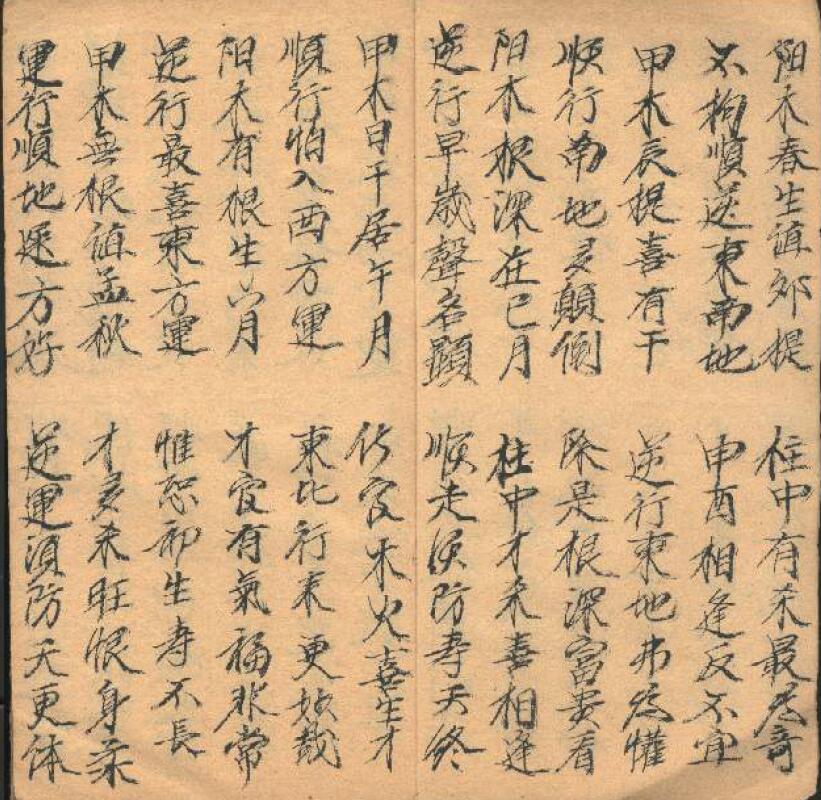 阳木春生值卯提 柱中有杀最為奇
不拘順逆東南地 申酉相逢反不宜
甲木辰提喜有干 逆行東地弗為懽
順行南地多顛倒 除是根深富贵看
阳木根深在巳月 柱中才杀喜相逢
逆行早歲聲名顯 順走須防寿夭终
甲木日干居午月 伤官木火喜生才
順行怕入西方運 東北行来更妙哉
阳木有根生六月 才官有氣福非常
逆行最喜東方運 惟恐卯生寿不長
甲木無根值孟秋 才多杀旺恨身柔
運行順地方好 逆運須防夭更体